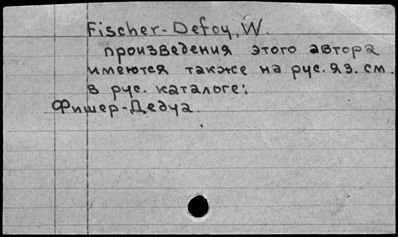 Fischer-Defoy, W.
произведения этого автора
имеются также на рус. яз. см.
в рус. каталоге:
Фишер-Дедуа.